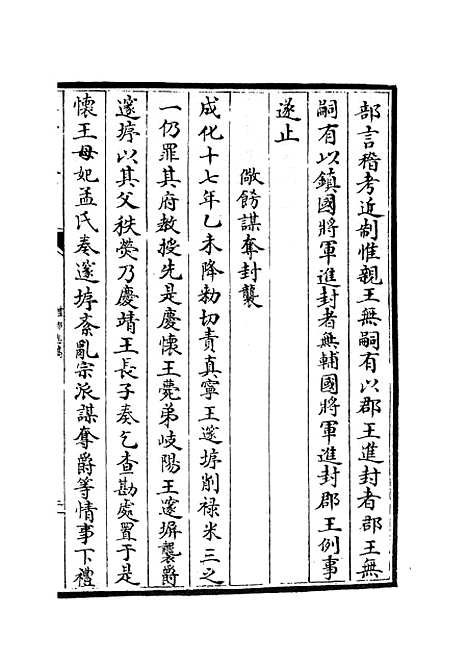 部言稽考近制惟親王無嗣有以郡王進封者郡王無
嗣有以鎮國將軍進封者無輔國將軍進封郡王例事
遂止
倣餝謀奪封襲
成化十七年乙未降勅切責真寧王邃㙔削祿米三之
一仍罪其府教授先是慶懷王薨弟岐陽王邃塀襲爵
邃㙔以其父秩煢乃慶靖王長子奏乞查勘處置于是
懷王母妃孟氏奏邃㙔紊亂宗派謀奪爵等情事下禮